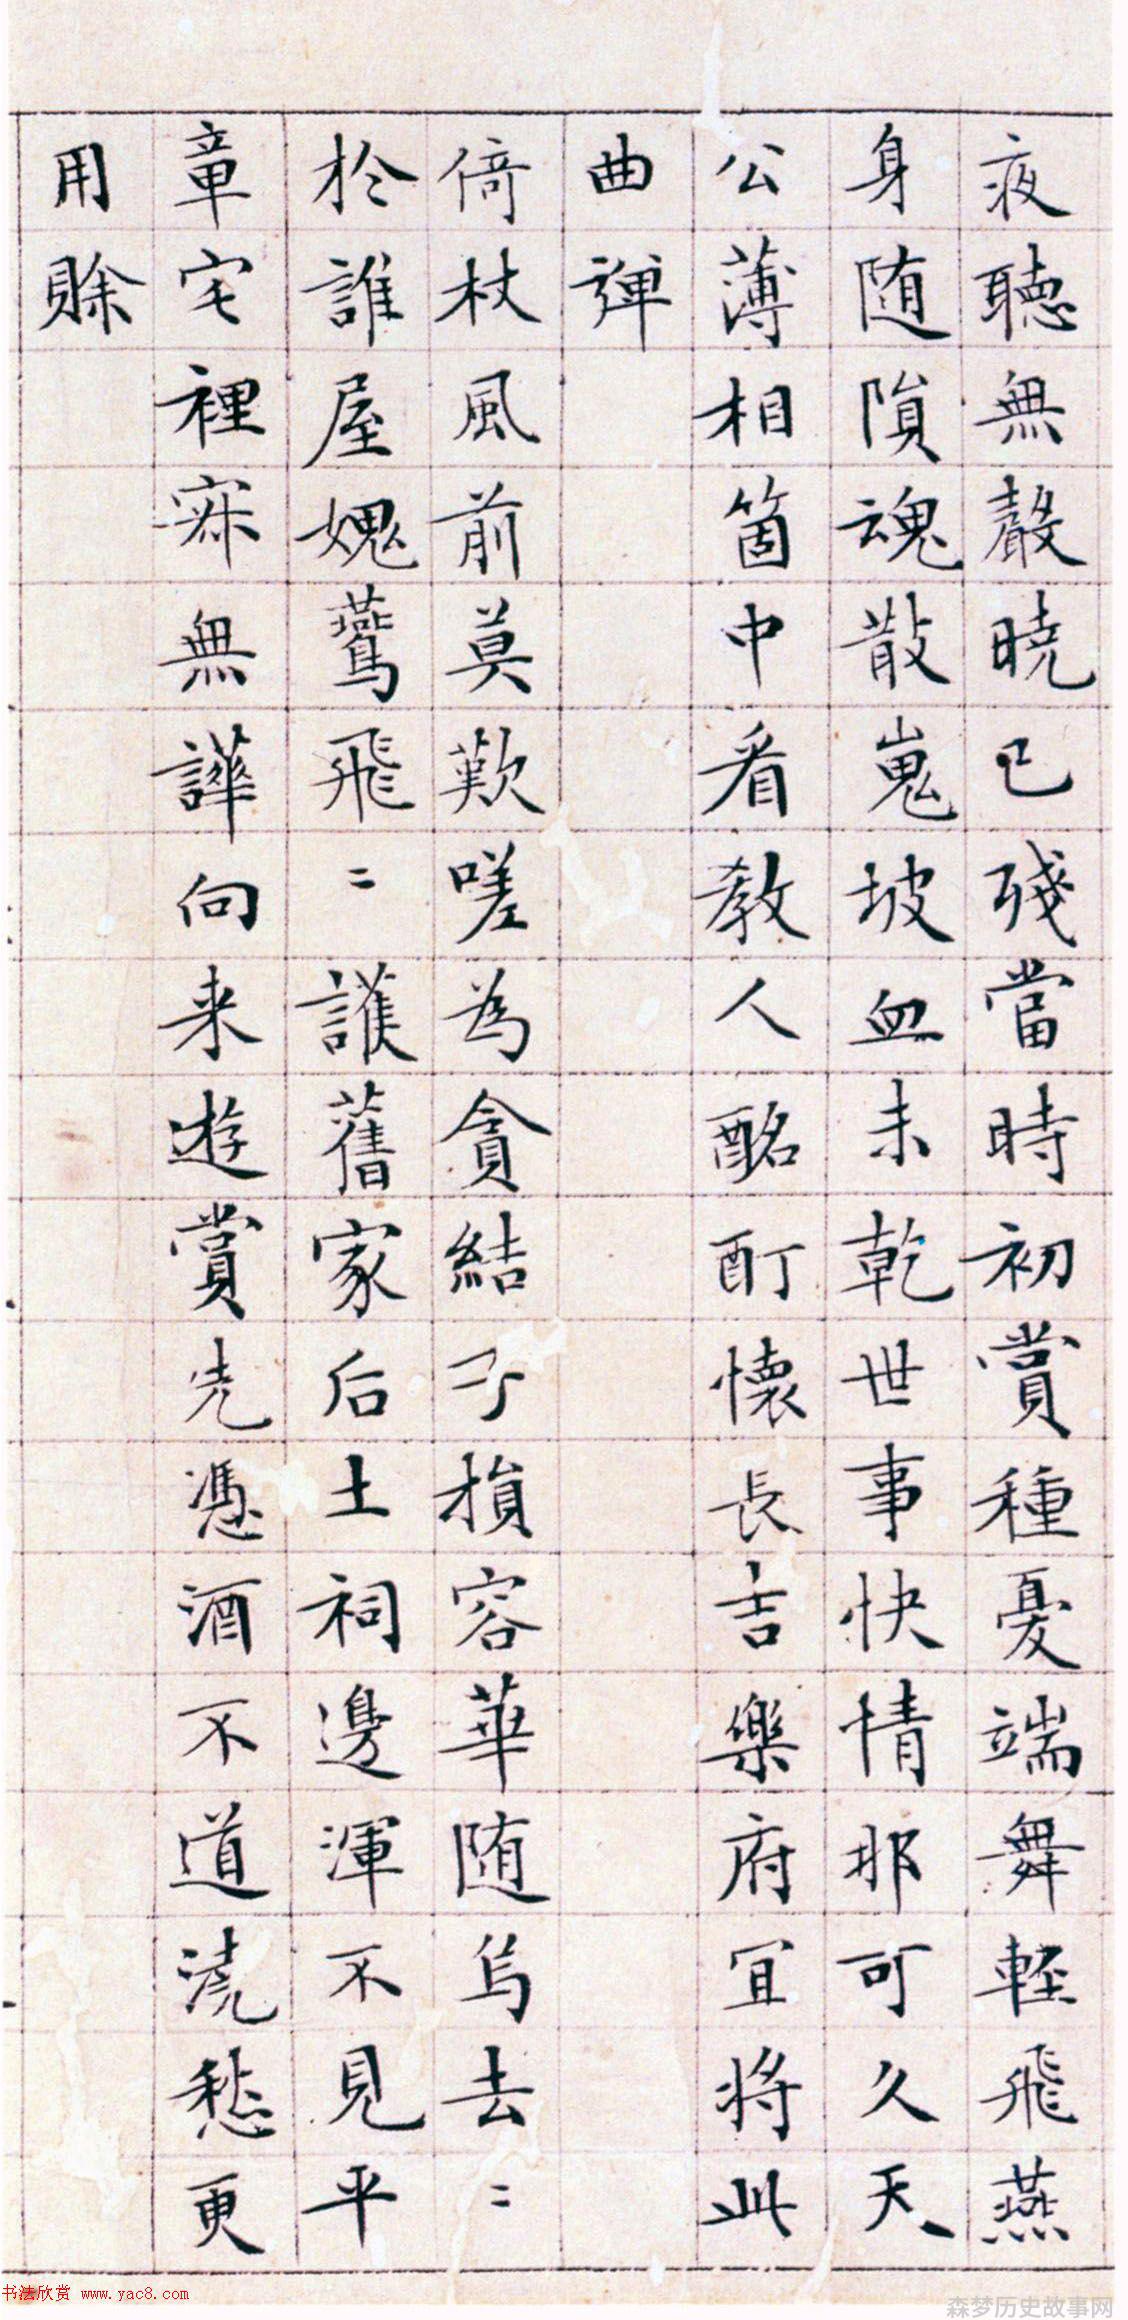 夜聽無聲曉已殘當時初賞種憂端舞輕飛燕
身随隕魂散嵬坡血未乾世事快情那可久天
公薄相箇中看教人酩酊懷長吉樂府宜将此
曲彈
倚杖風前莫歎嗟為貪結子損容華随烏去〻
於誰屋媿鷰飛〻護舊家后土祠邊渾不見平
章宅裡寂無譁向来遊賞先憑酒不道澆愁更
用賒
书法欣赏 www.yac8.com
森梦历史故事网